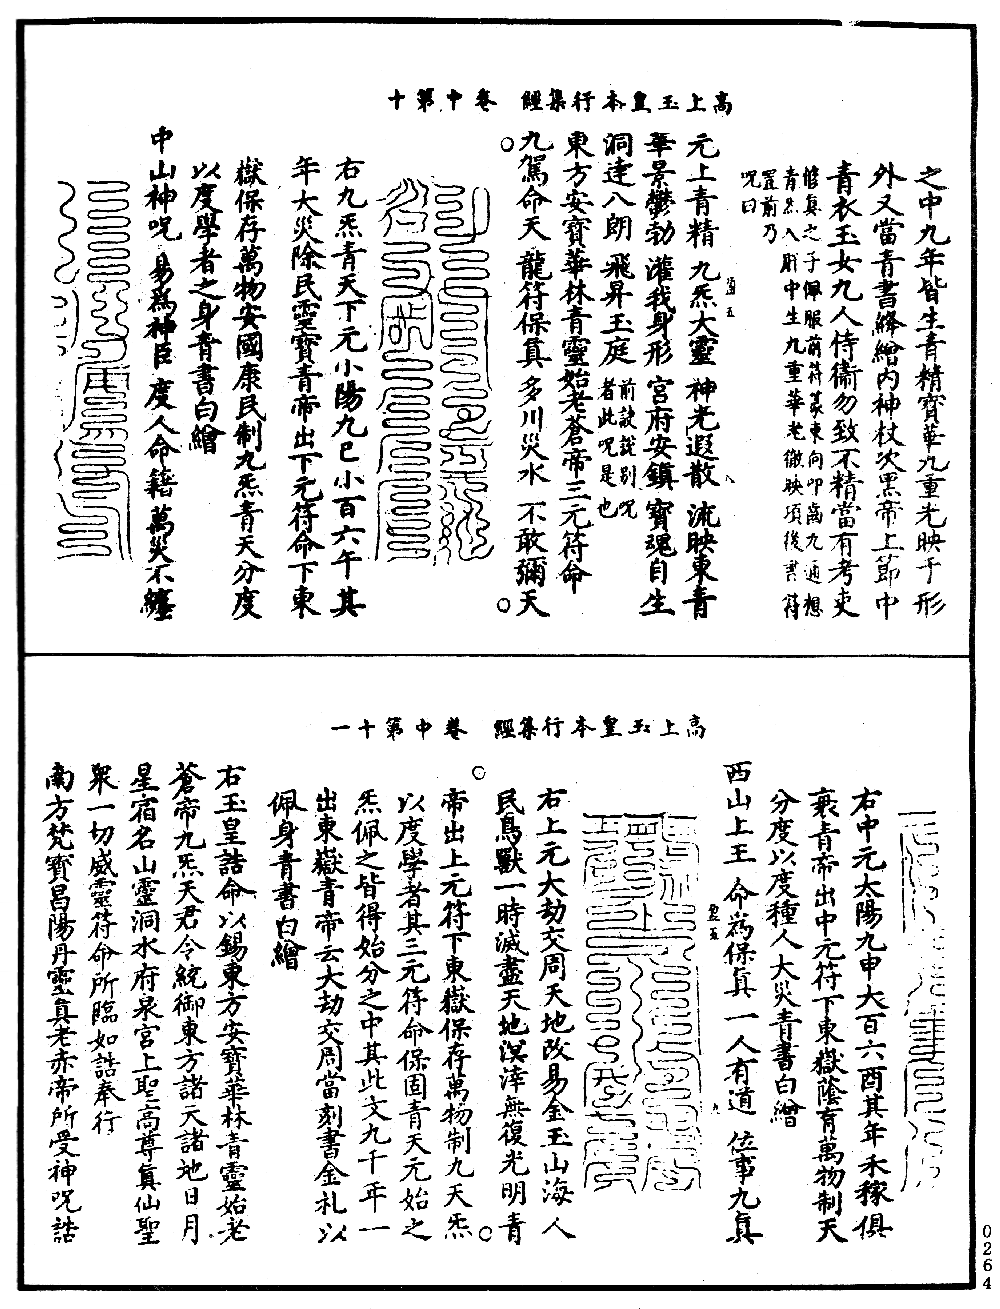 高上玉皇本行集經　卷中第十
之中九年皆生青精寶華九重光映于形
外又當青書絳繒内神杖次黑帝上節中
青衣玉女九人侍衛勿致不精當有考吏
惟真之子佩服前符篆東向叩齒九通想
青炁入肝中生九重華老徹映項後書符
置前乃
咒曰
元上青精　九炁大靈　神光遐散　流映東青
華景鬱勃　灌我身形　宮府安鎮　寶魂自生
洞達八朗　飛昇玉庭　前訣説別咒
者此咒是也
東方安寶華林青靈始老蒼帝三元符命
九駕命天　龍符保真　多川災水　不敢彌天
右九炁青天下元小陽九巳小百六午其
年大災除民靈寶青帝出下元符命下東
嶽保存萬物安國康民制九炁青天分度
以度學者之身青書白繒
中山神咒　易為神臣　度人命籍　萬災不纏
高上玉皇本行集經　卷中第十一
右中元太陽九申大百六酉其年禾稼俱
喪青帝出中元符下東嶽蔭育萬物制天
分度以度種人大災青書白繒
西山上王　命為保真　一人有道　位事九真
右上元大劫交周天地改易金玉山海人
民鳥獸一時滅盡天地溟涬無復光明青
帝出上元符下東嶽保存萬物制九天炁
以度學者其三元符命保固青天元始之
炁佩之皆得始分之中其此文九千年一
出東嶽青帝云大劫交周當刻書金札以
佩身青書白繒
右玉皇誥命以錫東方安寶華林青靈始老
蒼帝九炁天君令統御東方諸天諸地日月
星宿名山靈洞水府泉宮上聖高尊真仙聖
眾一切威靈符命所臨如誥奉行
南方梵寶昌陽丹靈真老赤帝所受神咒誥
0264